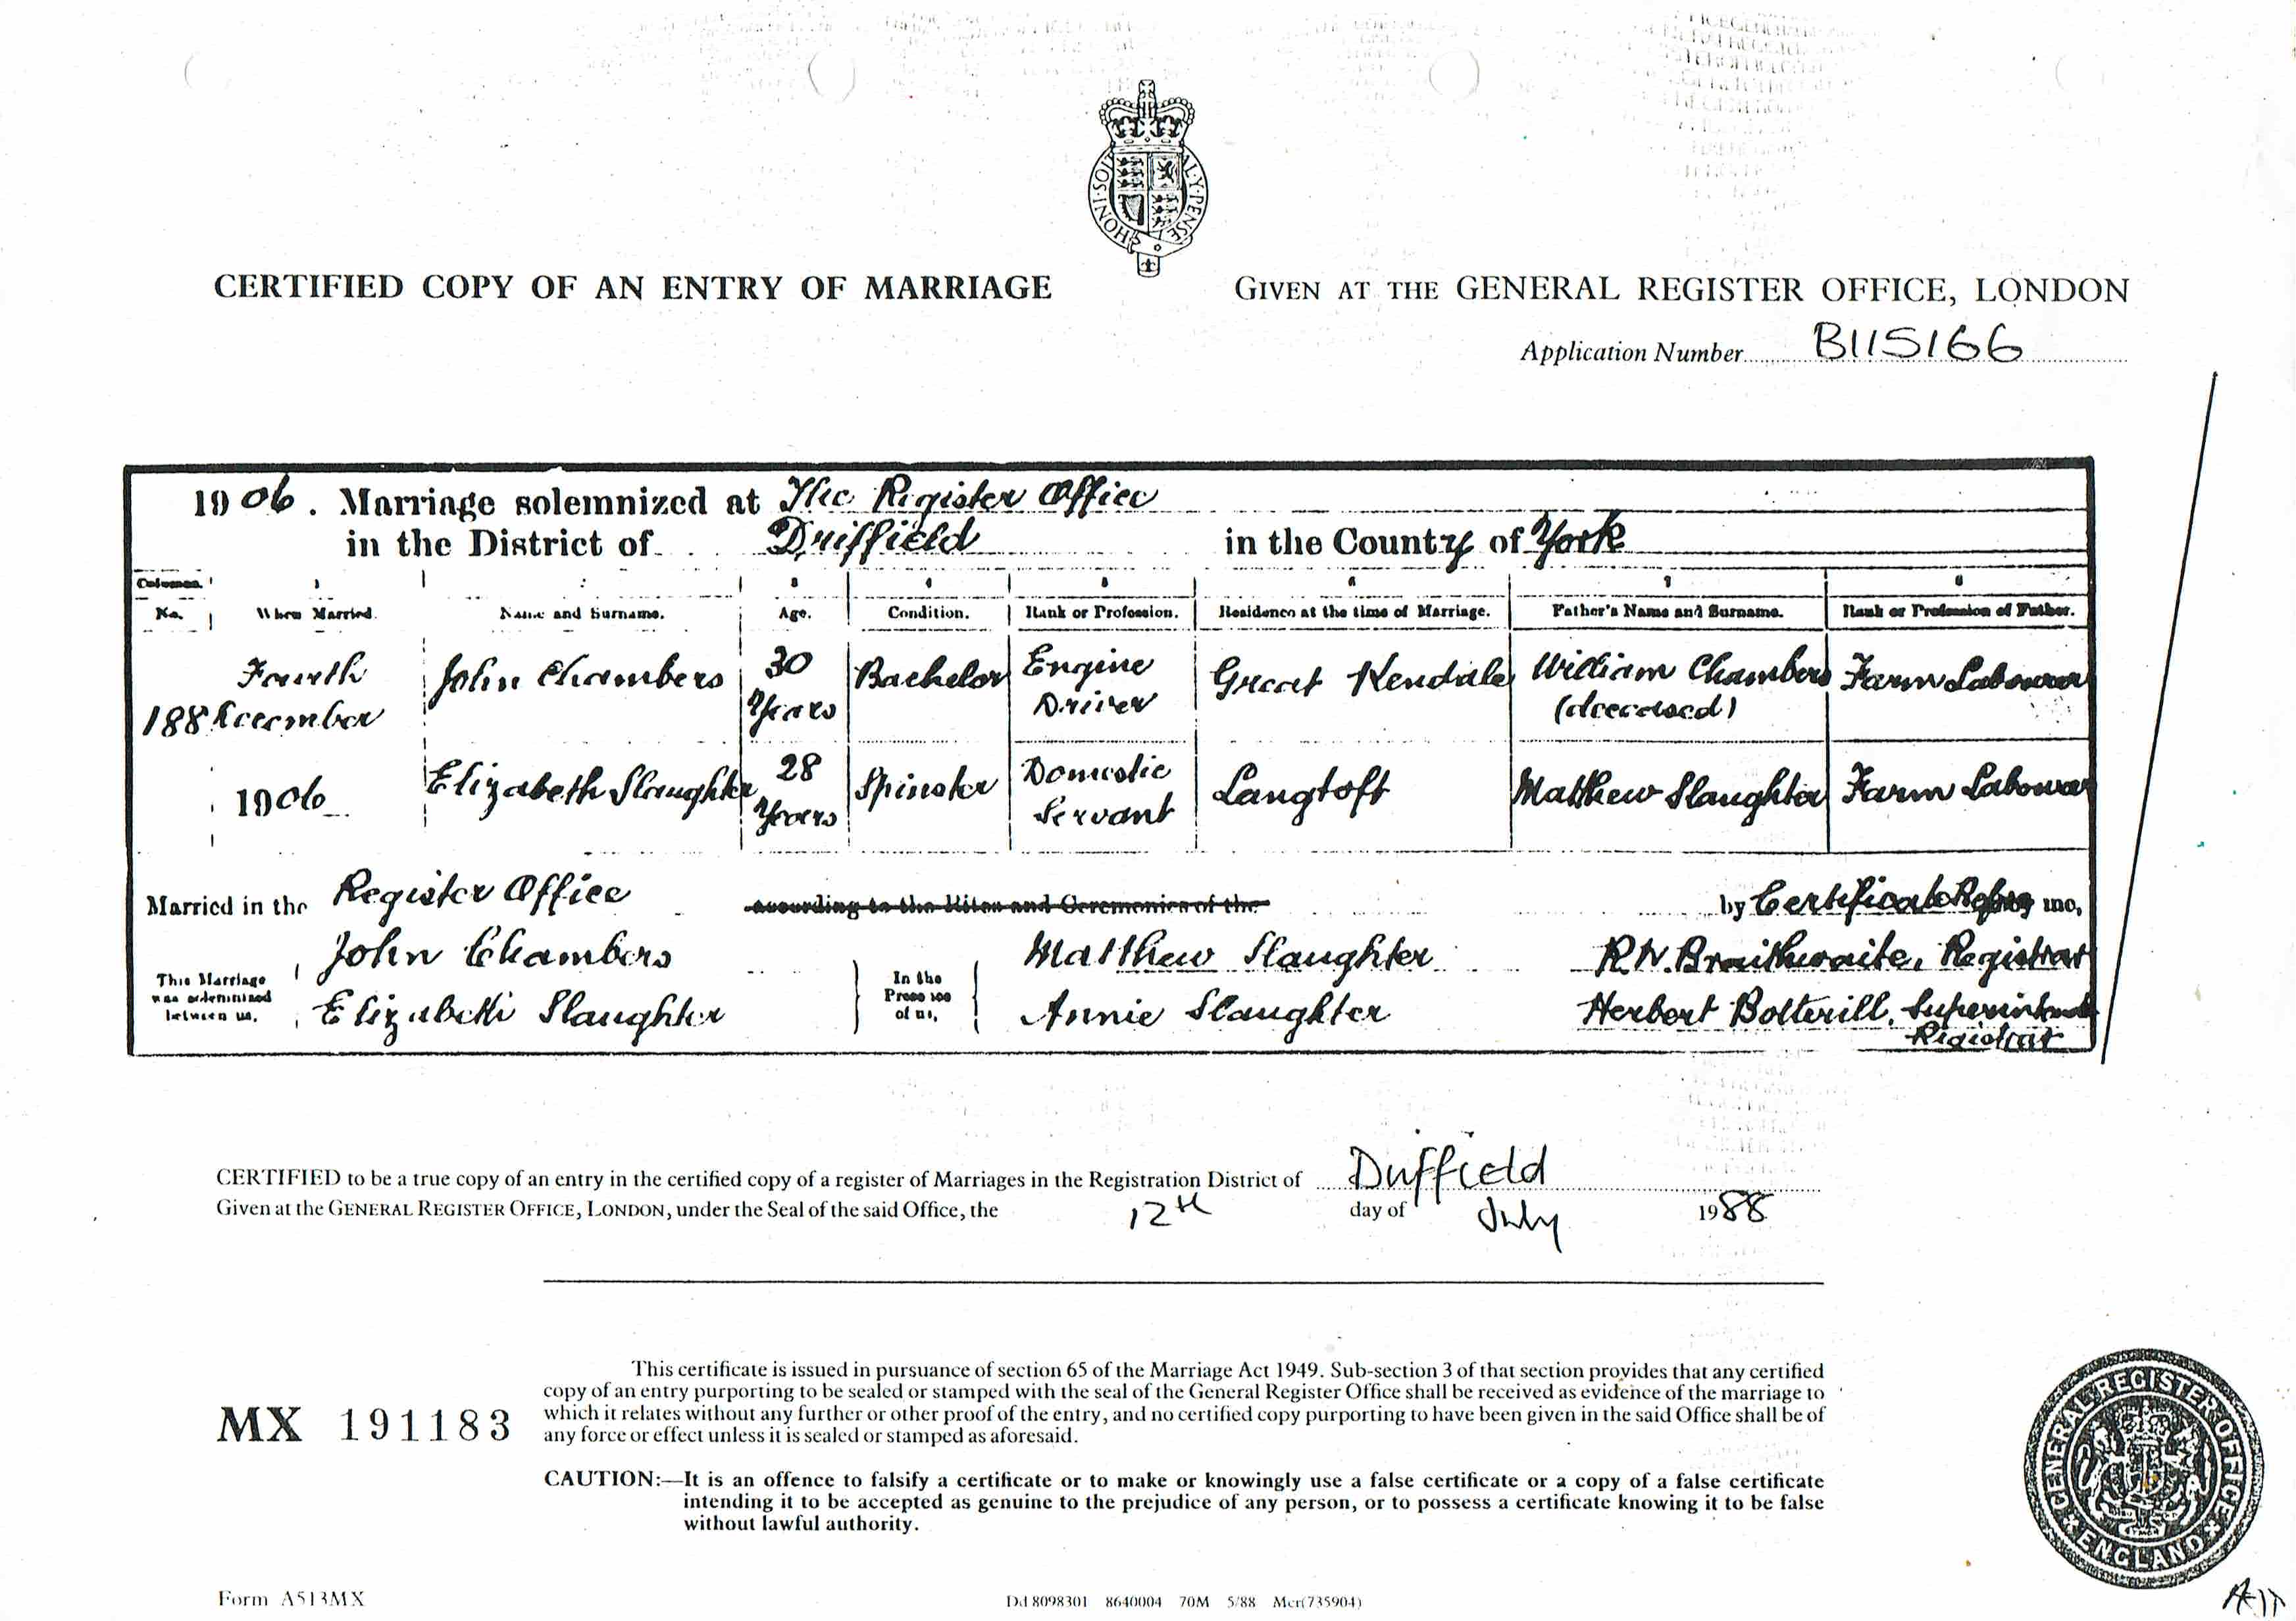 HONI·SOIT
AL·Y·PENSE
CERTIFIED COPY OF AN ENTRY OF MARRIAGE
GIVEN AT THE GENERAL REGISTER OFFICE, LONDON
Application Number B115166
1906. Marriage solemnized at The Register Office
in the District of Driffield in the County of York
Columns. 1 2 3 4 5 6 7 8
No. When Married. Name and Surname. Age. Condition. Rank or Profession. Residence at the time of Marriage. Father's Name and Surname. Rank or Profession of Father.
188 Fourth December 1906 John Chambers 30 Years Bachelor Engine Driver Great Kendale William Chambers (deceased) Farm Labourer
Elizabeth Slaughter 28 Years Spinster Domestic Servant Langtoft Matthew Slaughter Farm Labourer
Married in the Register Office according to the Rites and Ceremonies of the by Certificate before me,
This Marriage was solemnized between us, John Chambers
Elizabeth Slaughter
In the Presence of us, Matthew Slaughter
Annie Slaughter
R.W. Braithwaite, Registrar
Herbert Botterill, Superintendent
Registrar
CERTIFIED to be a true copy of an entry in the certified copy of a register of Marriages in the Registration District of Driffield
Given at the GENERAL REGISTER OFFICE, LONDON, under the Seal of the said Office, the 12th day of July 1988
This certificate is issued in pursuance of section 65 of the Marriage Act 1949. Sub-section 3 of that section provides that any certified
copy of an entry purporting to be sealed or stamped with the seal of the General Register Office shall be received as evidence of the marriage to
which it relates without any further or other proof of the entry, and no certified copy purporting to have been given in the said Office shall be of
any force or effect unless it is sealed or stamped as aforesaid.
MX 191183
CAUTION:—It is an offence to falsify a certificate or to make or knowingly use a false certificate or a copy of a false certificate
intending it to be accepted as genuine to the prejudice of any person, or to possess a certificate knowing it to be false
without lawful authority.
GENERAL REGISTER OFFICE
ENGLAND
Form A513MX
Dd 8098301 8640004 70M 5/88 Mcr(735904)